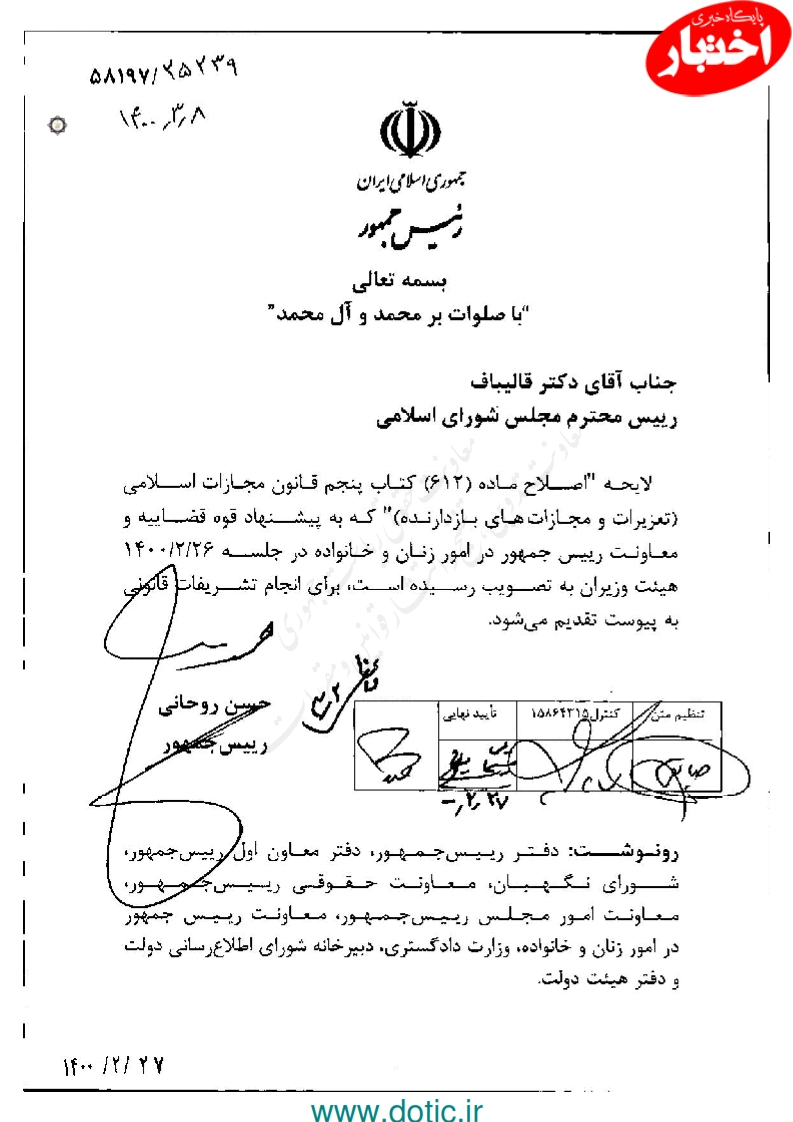 پایگاه خبری
اختبار
۵۸۱۹۷/۲۵۲۳۹
۱۴۰۰/۳/۸
جمهوری اسلامی ایران
رئیس جمهور
بسمه تعالی
"با صلوات بر محمد و آل محمد"
جناب آقای دکتر قالیباف
رییس محترم مجلس شورای اسلامی
لایحه "اصـلاح ماده (۶۱۲) کتاب پنجم قانون مجازات اسـلامی
(تعزیرات و مجازات‌های بازدارنده)" کـه به پیشـنهاد قوه قضاییه و
معاونت رییس جمهور در امور زنان و خانواده در جلسـه ۱۴۰۰/۲/۲۶
هیئت وزیران به تصویب رسـیده اسـت، برای انجام تشـریفات قانونی
به پیوست تقدیم می‌شود.
حسن روحانی
رییس‌جمهور
تنظیم متن
کنترل ۱۵۸۶۴۳۱۵
تأیید نهایی
رونـوشــت: دفـتـر ریـیـس‌جـمـهـور، دفتر معاون اول رییس‌جمهور،
شــورای نـگـهـبـان، مـعـاونـت حـقـوقـی ریـیـس‌جـمـهـور،
مـعـاونـت امـور مـجـلـس ریـیـس‌جـمـهـور، مـعـاونـت ریـیـس جمهور
در امور زنان و خانواده، وزارت دادگستری، دبیرخانه شورای اطلاع‌رسانی دولت
و دفتر هیئت دولت.
۱۴۰۰/۲/۲۷
www.dotic.ir